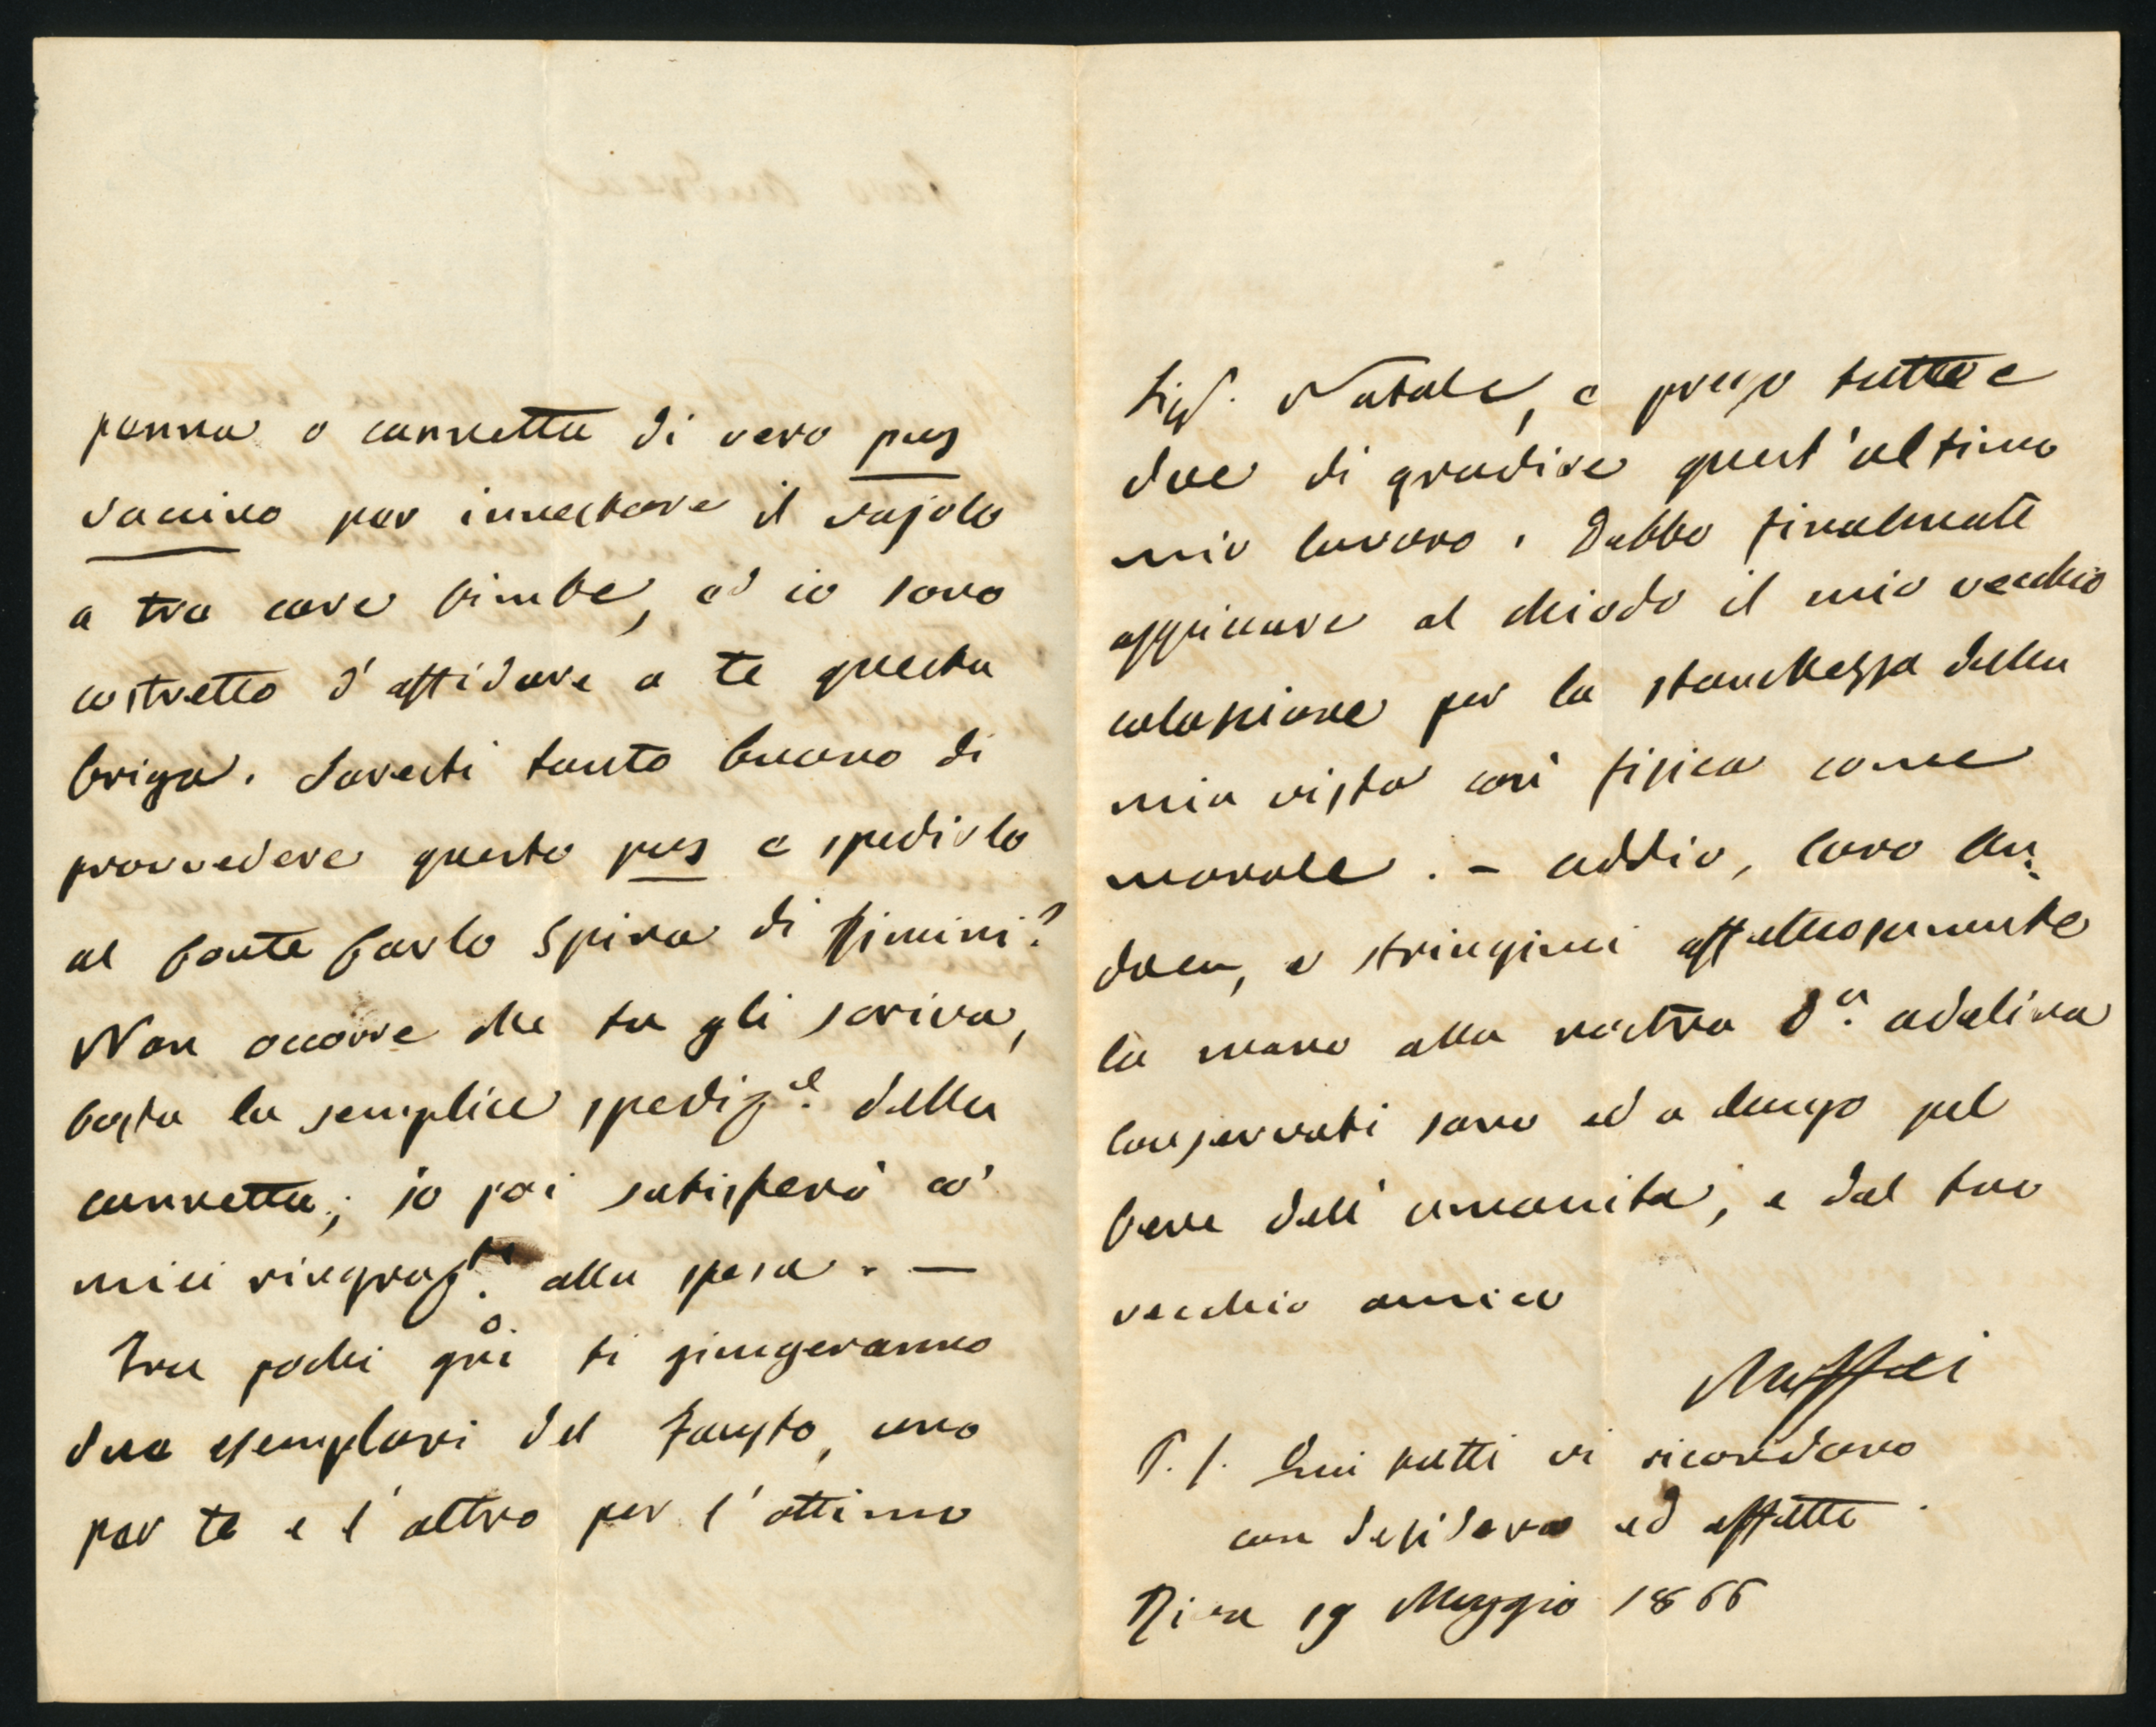 penna o cannetta di vero pus
vacino per innestare il vajolo
a tre care bimbe, ed io sono
costretto d'affidare a te questa
briga. Saresti tanto buono di
provvedere questo pus e spedirlo
al Conte Carlo Spina di Rimini?
Non occorre che tu gli scriva,
basta la semplice spediz.e della
cannetta; io poi satisferò co'
miei ringraz.ti alla spesa. —
Tra pochi gni ti giungeranno
due esemplari del Fausto, uno
per te e l'altro per l'ottimo
Sigr. Natale, e prego tutti e
due di gradire quest'ultimo
mio lavoro. Debbo finalmente
appiccare al chiodo il mio vecchio
colascione per la stanchezza della
mia vista così fisica come
morale. – Addio, caro An:
drea, e stringimi affettuosamente
la mano alla nostra Sa. Adelina
Conservati sano ed a lungo pel
bene dell'umanità, e dal tuo
vecchio amico
Maffei
P.S. Qui tutti vi ricordano
con desiderio ed affetto.
Riva 19 Maggio 1866